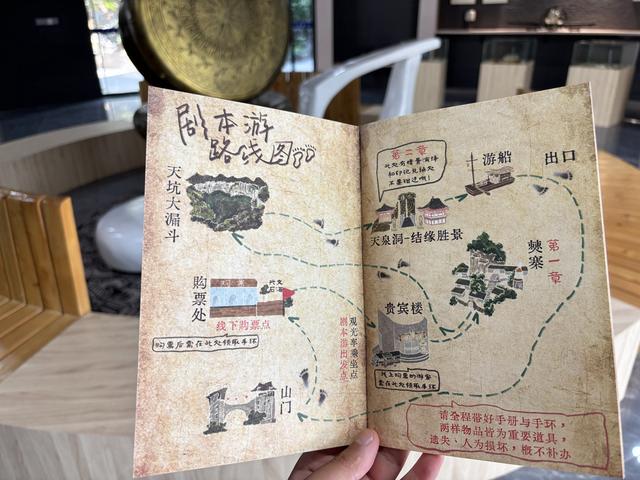 剧本游
路线图
天坑大漏斗
购票处
线下购票点
购票后需在此处领取手环
山门
观光车乘坐点
剧本游出发点
第二章
天泉洞-结缘胜景
游船
出口
僰寨
第一章
贵宾楼
线上购票的游客
需在此处领取手环
请全程带好手册与手环，
两样物品皆为重要道具，
遗失、人为损坏，概不补办